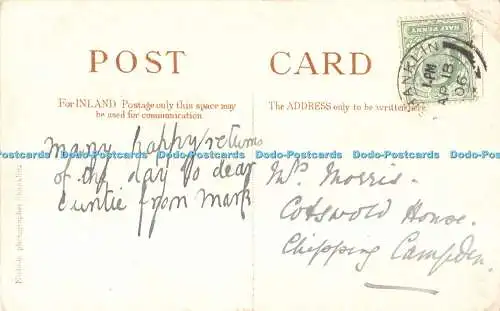 POST CARD
For INLAND Postage only this space may
be used for communication.
The ADDRESS only to be written here
HALF PENNY
SHANKLIN
AP 18
06
Many happy returns
of the day to dear
Auntie from Mark
Mrs Morris.
Cotswold House.
Chipping Campden.
Dodo-Postcards Dodo-Postcards Dodo-Postcards Dodo-Postcards Dodo-Postcards Dodo-Postcards
photographer Shanklin